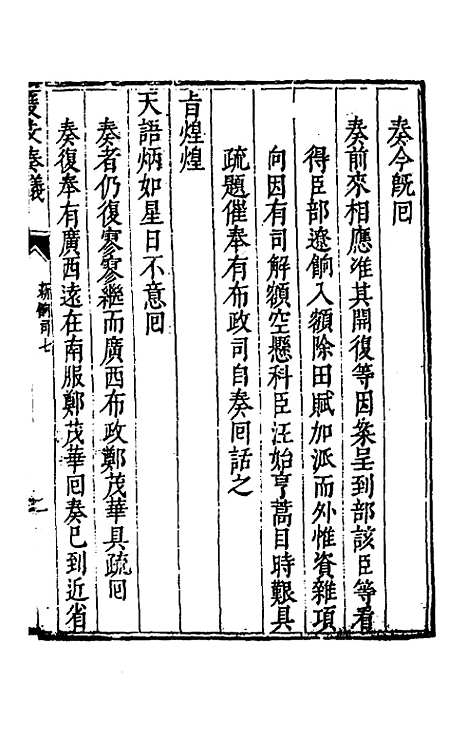 奏今旣囘
奏前來相應准其開復等因案呈到部該臣等看
得臣部遼餉入額除田賦加派而外惟資雜項
向因有司解額空懸科臣汪始亨蒿目時艱具
疏題催奉有布政司自奏囘話之
旨煌煌
天語炳如星日不意囘
奏者仍復寥寥繼而廣西布政鄭茂華具疏囘
奏復奉有廣西遠在南服鄭茂華囘奏已到近省
奏議
新餉司七